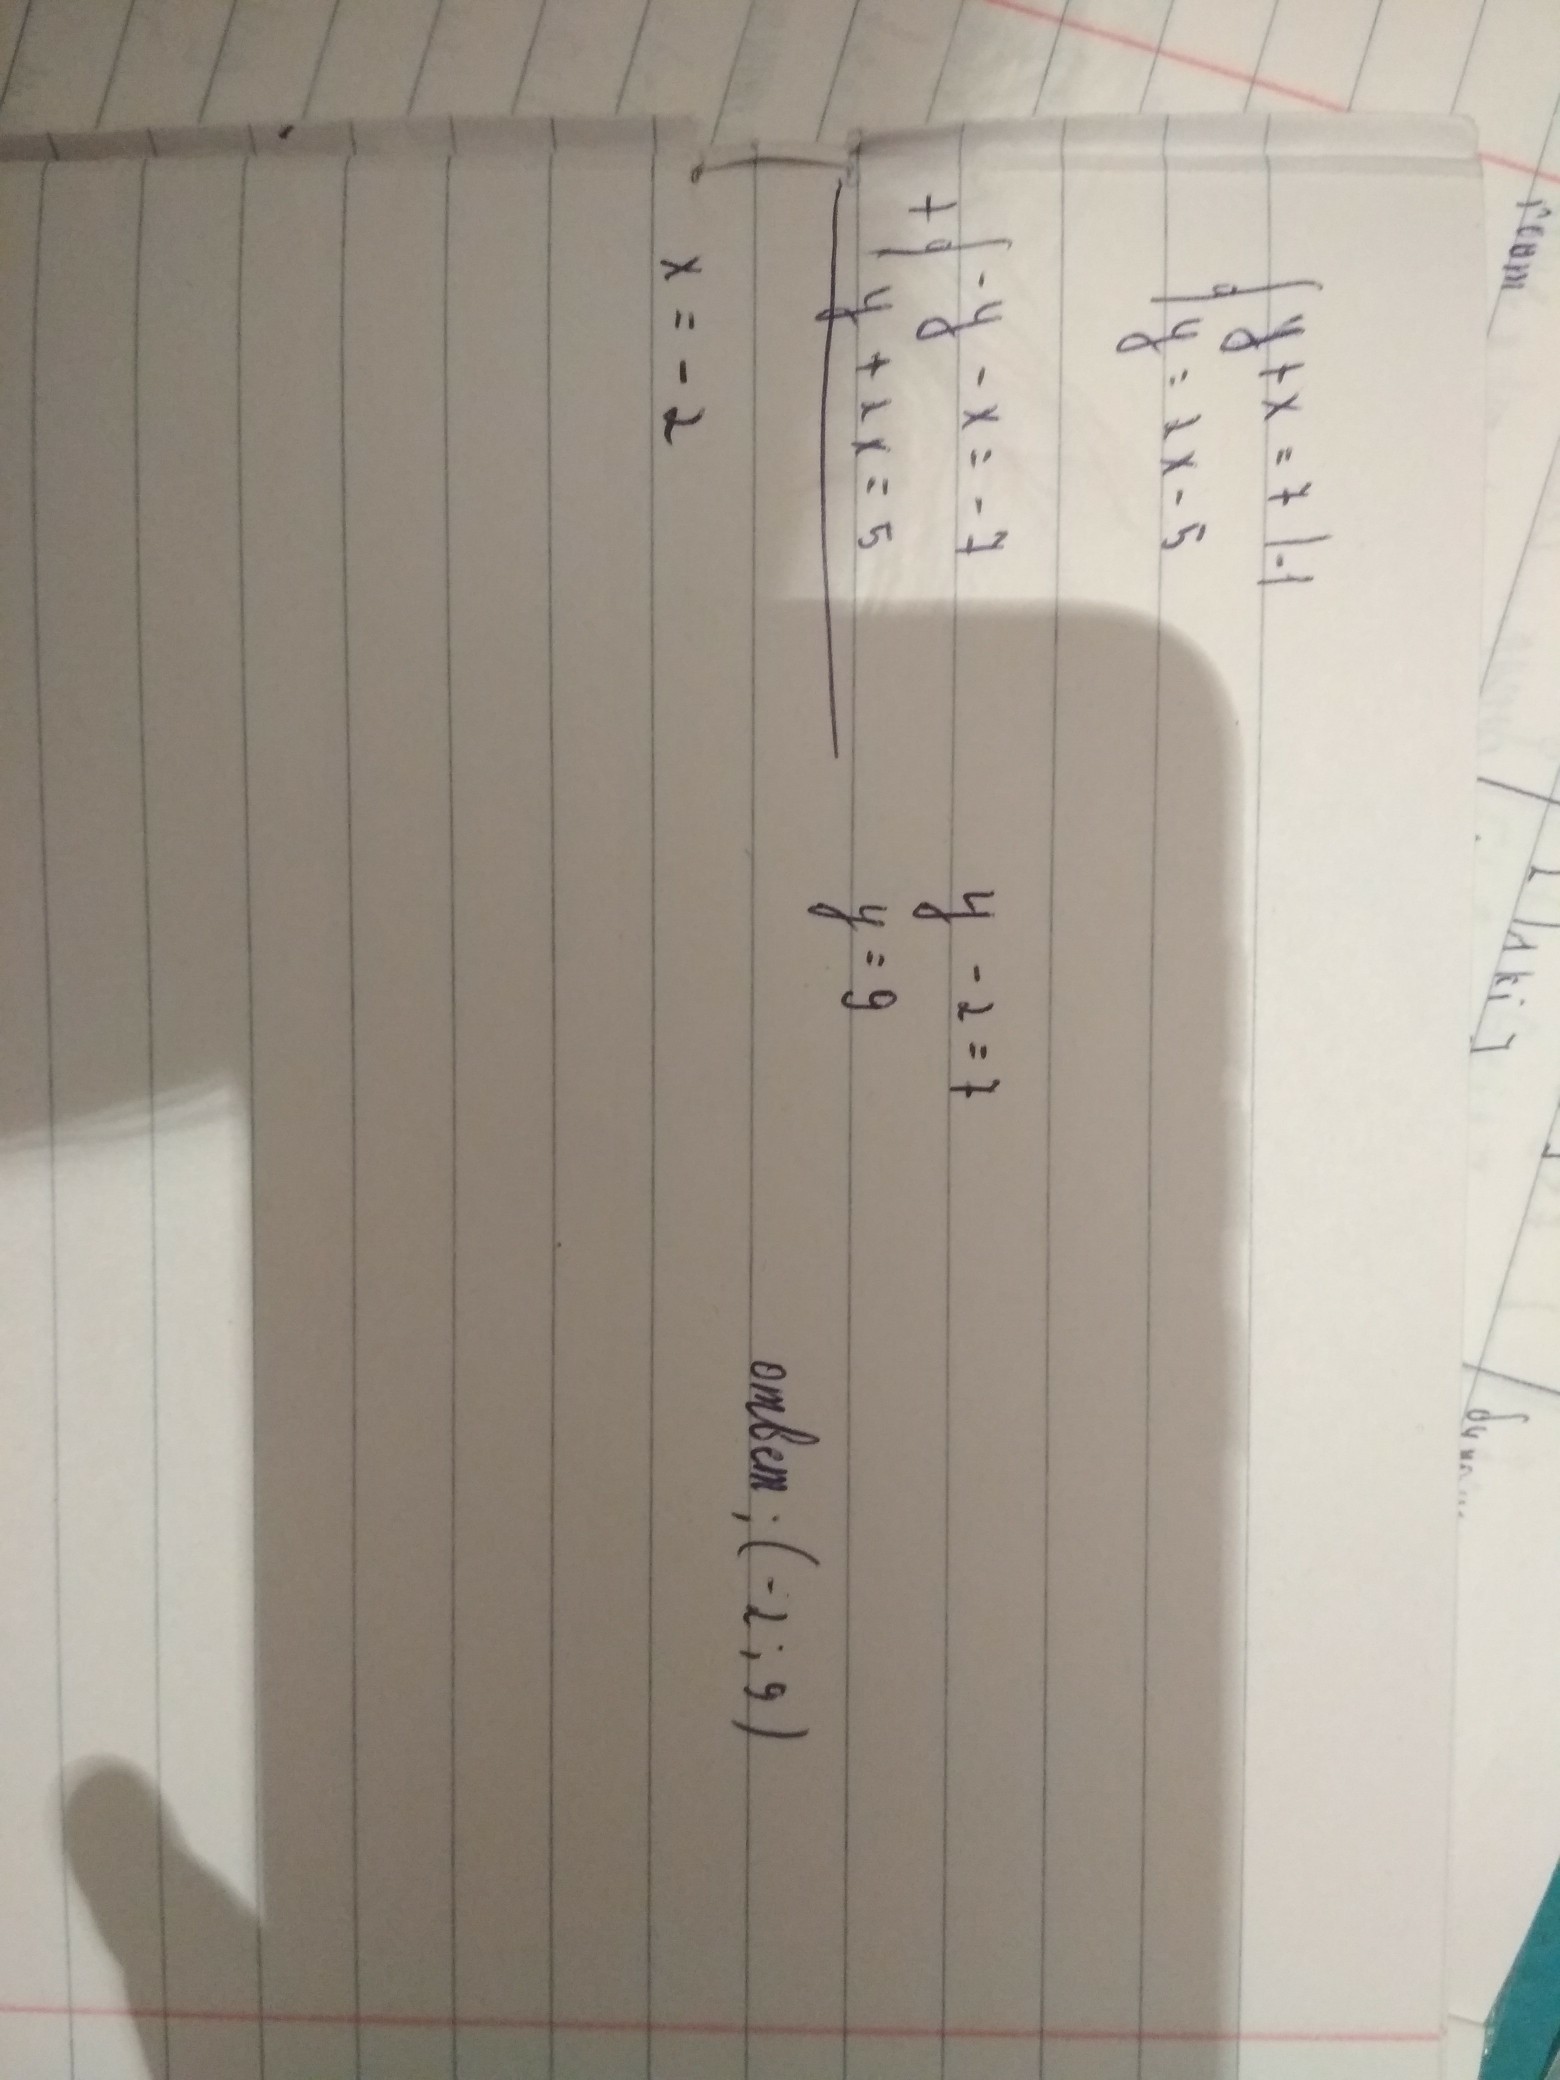 y + x = 7 | -1
y = 2x - 5
+ - y - x = - 7
y + 2x = 5
x = - 2
y - 2 = 7
y = 9
ответ; (-2; 9)